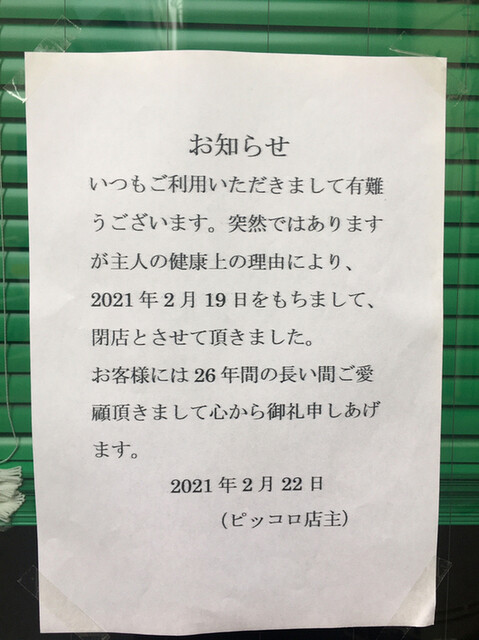 お知らせ
いつもご利用いただきまして有難
うございます。突然ではあります
が主人の健康上の理由により、
2021年2月19日をもちまして、
閉店とさせて頂きました。
お客様には26年間の長い間ご愛
顧頂きまして心から御礼申しあげ
ます。
2021年2月22日
（ピッコロ店主）